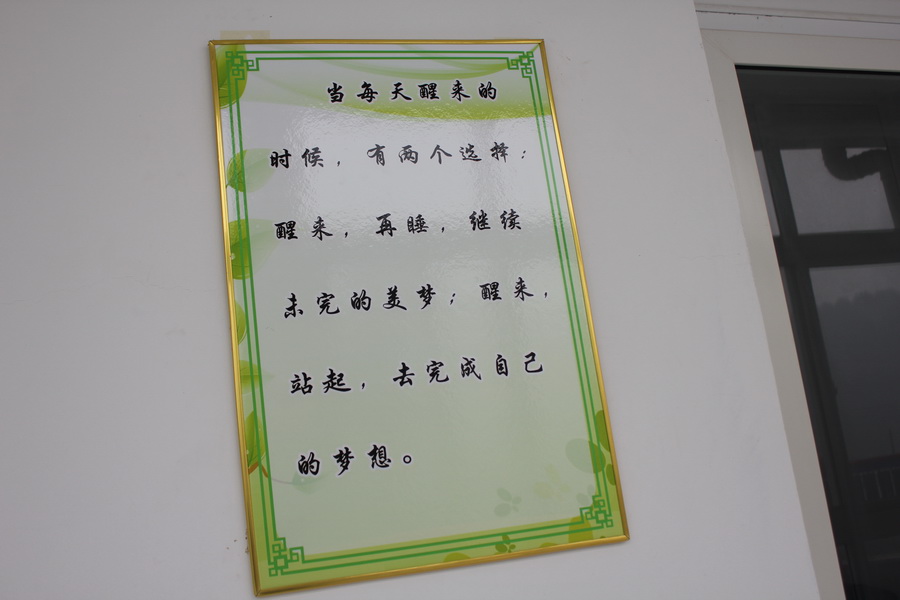 当每天醒来的
时候，有两个选择：
醒来，再睡，继续
未完的美梦；醒来，
站起，去完成自己
的梦想。